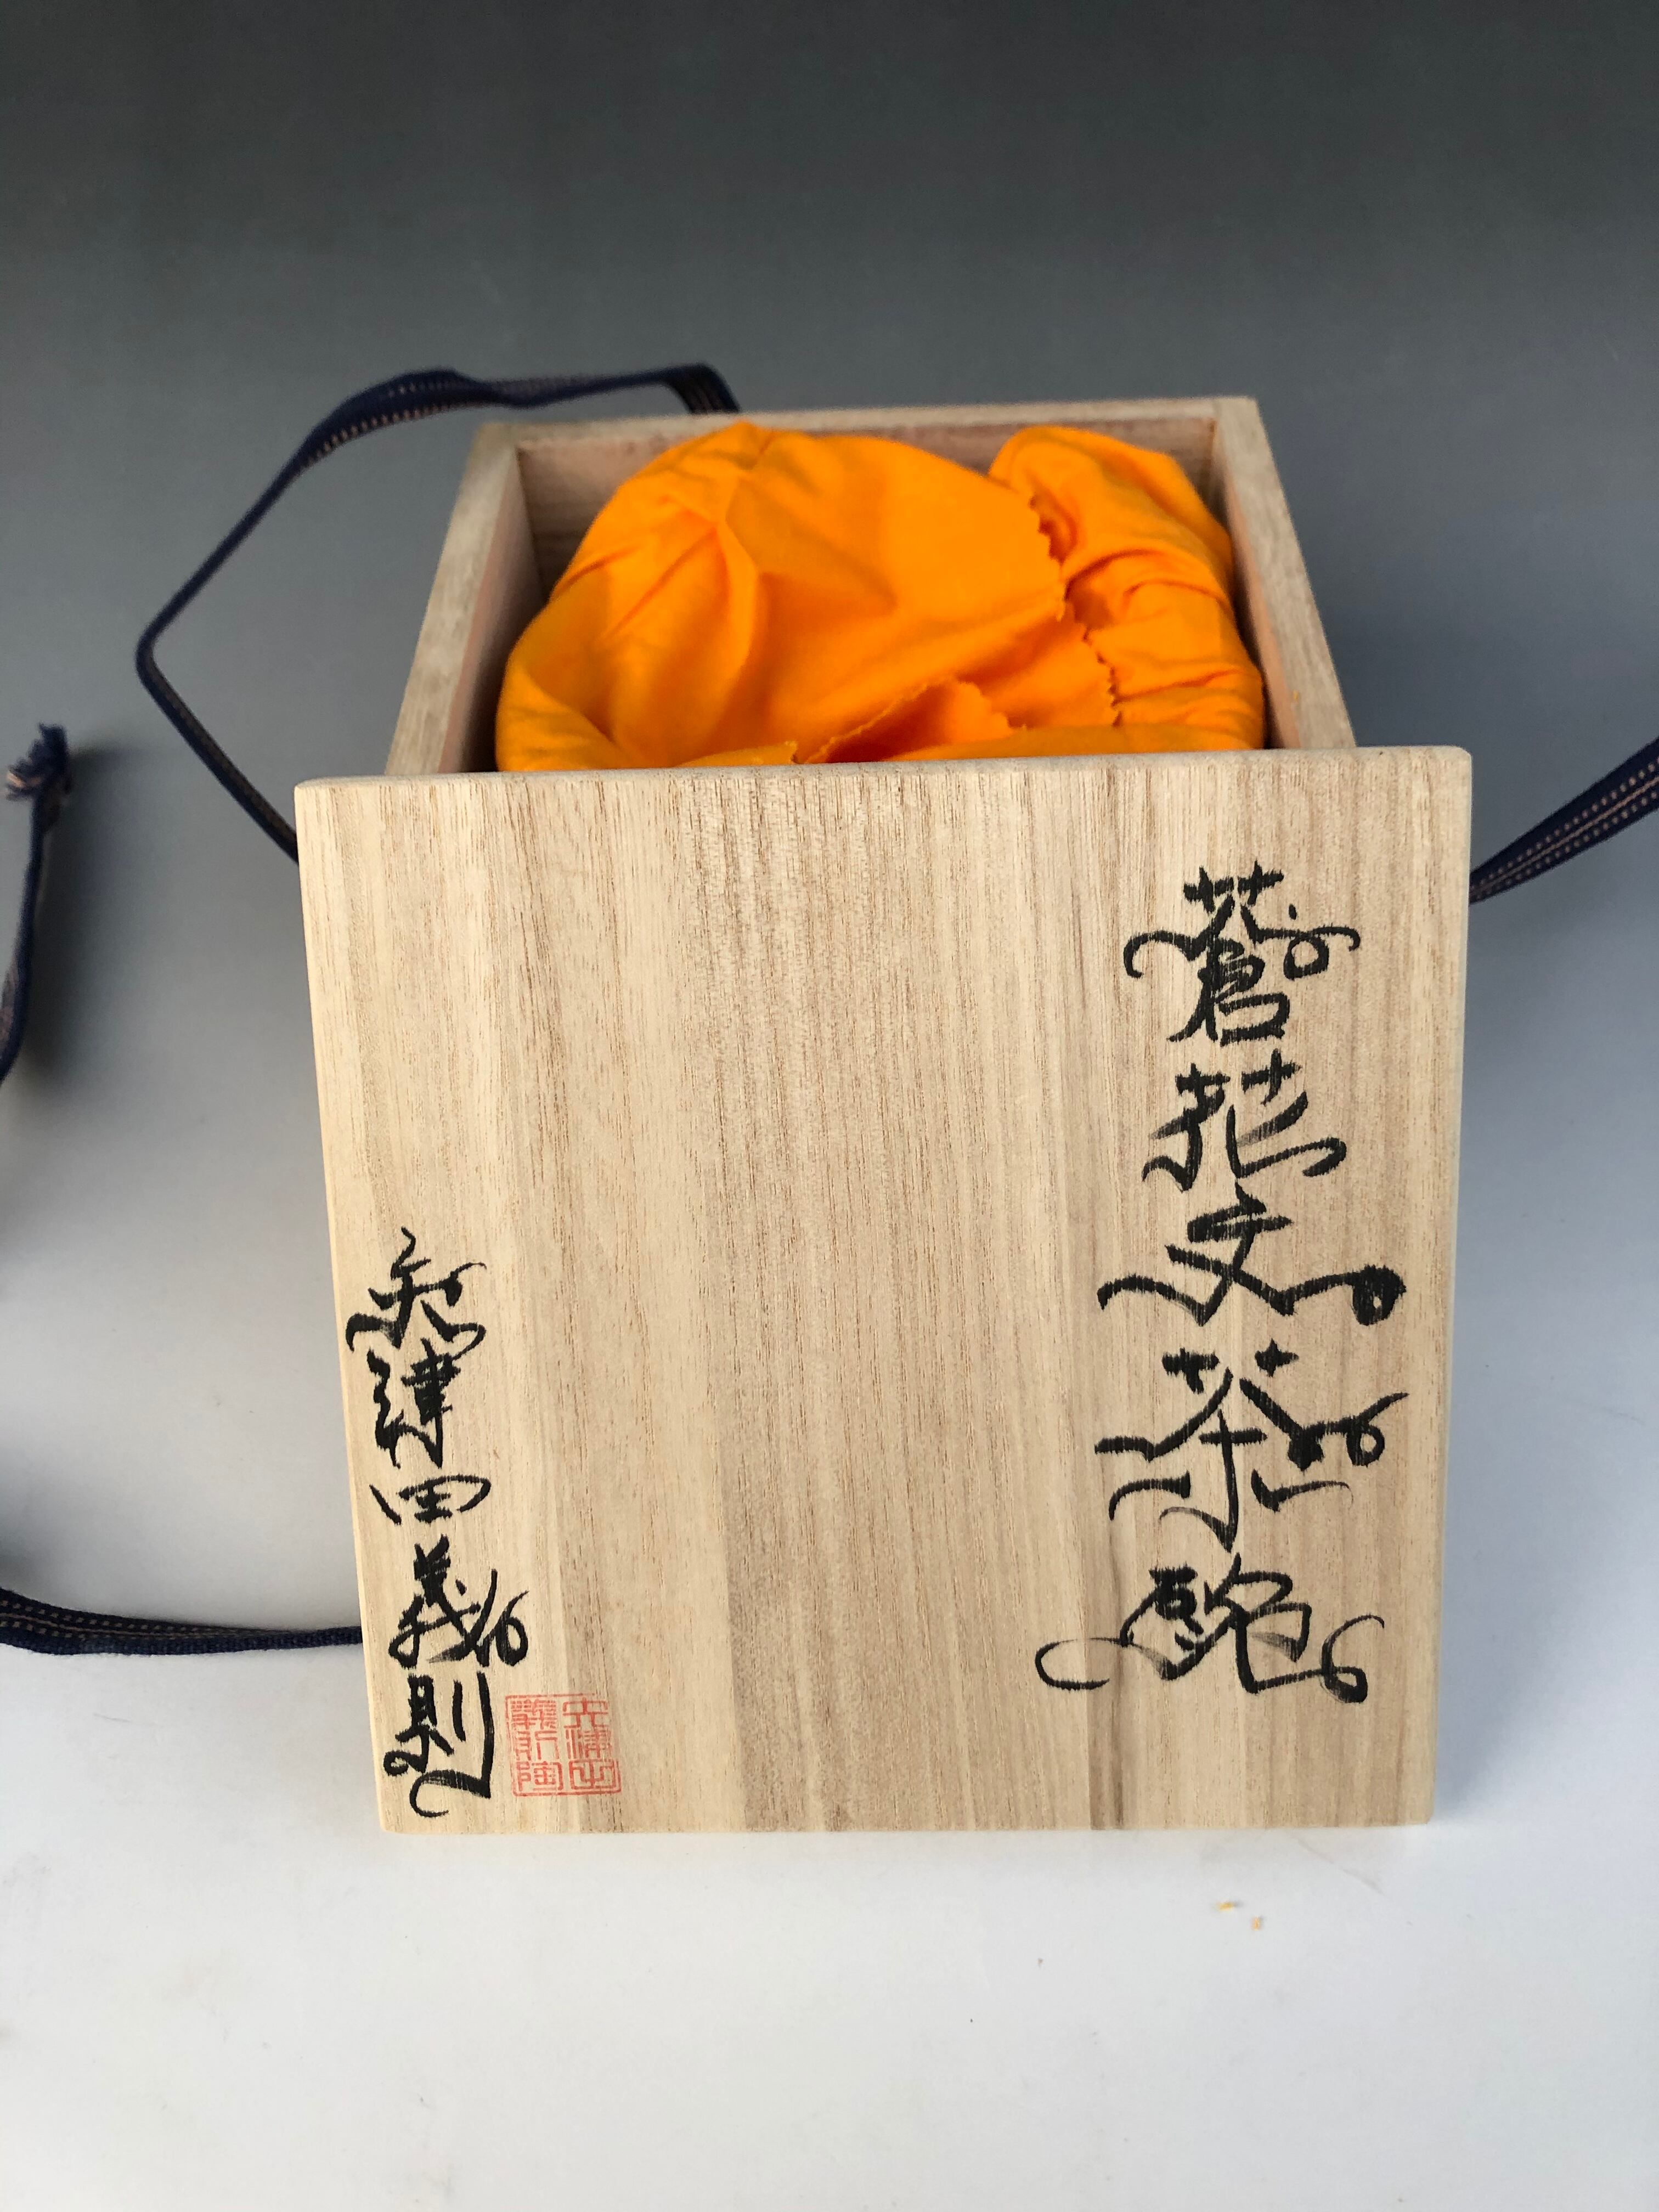 蒼花文茶碗
矢津田義則